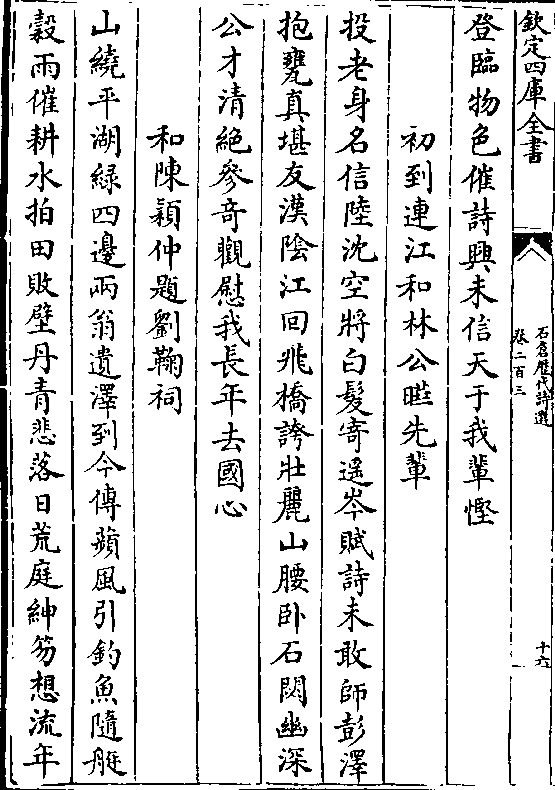 欽定四庫全書
石倉歷代詩選
卷二百三
十六
登臨物色催詩興未信天于我輩慳
初到連江和林公晅先輩
投老身名信陸沈空將白髮寄遥岑賦詩未敢師彭澤
抱甕真堪友漢陰江回飛橋誇壯麗山腰卧石閟幽深
公才清絶參竒觀慰我長年去國心
和陳穎仲題劉鞠祠
山繞平湖緑四邊兩翁遺澤到今傳蘋風引釣魚隨艇
穀雨催耕水拍田敗壁丹青悲落日荒庭紳笏想流年